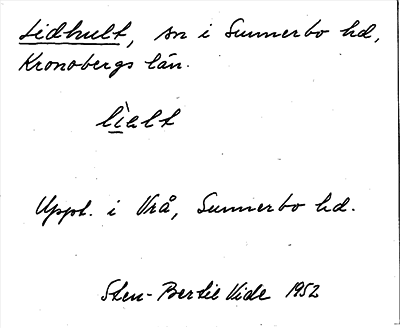 Lidhult, sn i Sunnerbo hd,
Kronobergs län.
lìalt
Uppt. i Vrå, Sunnerbo hd.
Sten-Bertil Vide 1952